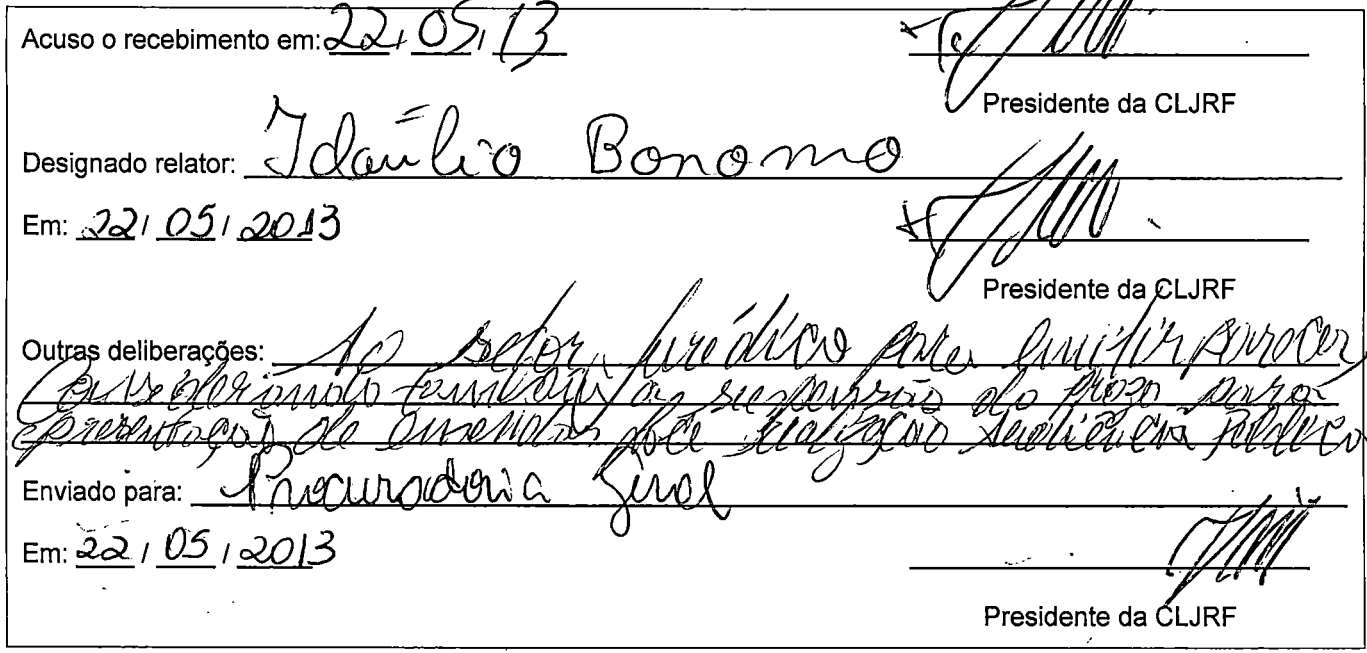 Acuso o recebimento em: 22/05/13
Presidente da CLJRF
Designado relator: Idaúlio Bonomo
Em: 22/05/2013
Presidente da CLJRF
Outras deliberações: Ao setor jurídico para emitir parecer,
considerando também a suspensão do prazo para
apresentação de emendas até realização audiência pública
Enviado para: Procuradoria Geral
Em: 22/05/2013
Presidente da CLJRF